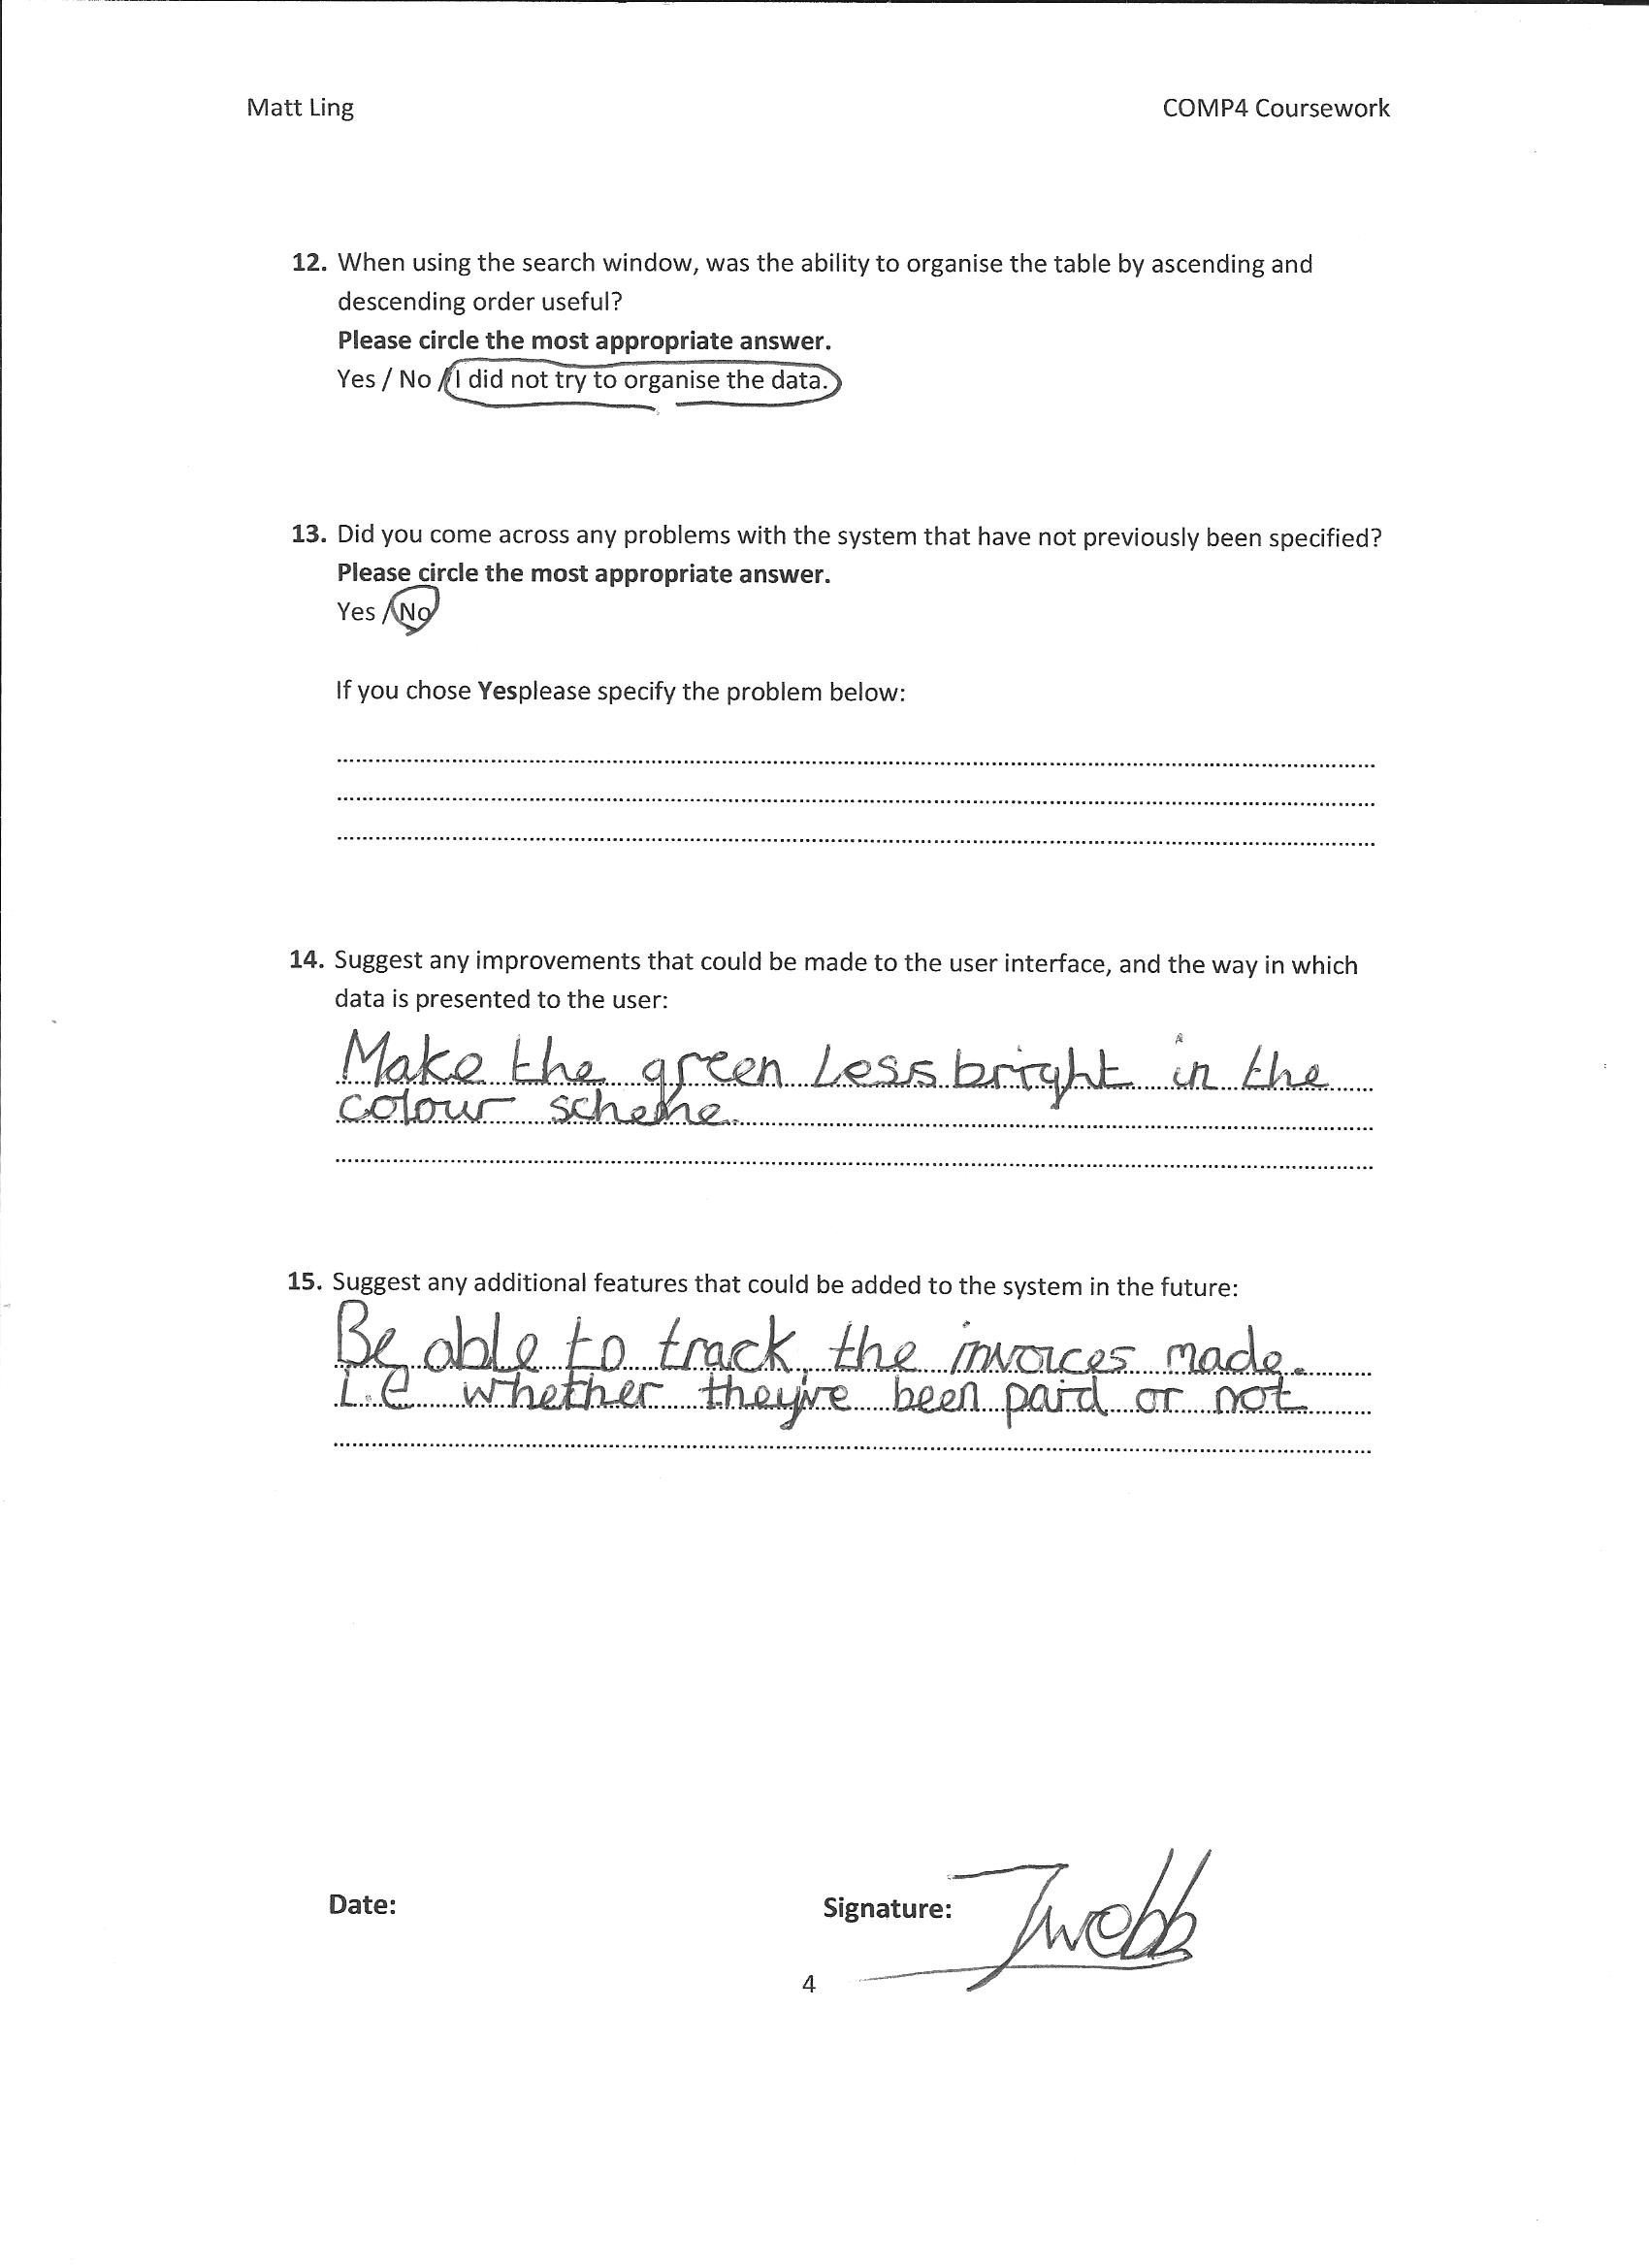 Matt Ling COMP4 Coursework
12. When using the search window, was the ability to organise the table by ascending and
descending order useful?
Please circle the most appropriate answer.
Yes / No / I did not try to organise the data.
13. Did you come across any problems with the system that have not previously been specified?
Please circle the most appropriate answer.
Yes / No
If you chose Yesplease specify the problem below:
14. Suggest any improvements that could be made to the user interface, and the way in which
data is presented to the user:
Make the green less bright in the
colour scheme.
15. Suggest any additional features that could be added to the system in the future:
Be able to track the invoices made.
i.e whether they've been paid or not
Date: Signature: JWebb
4